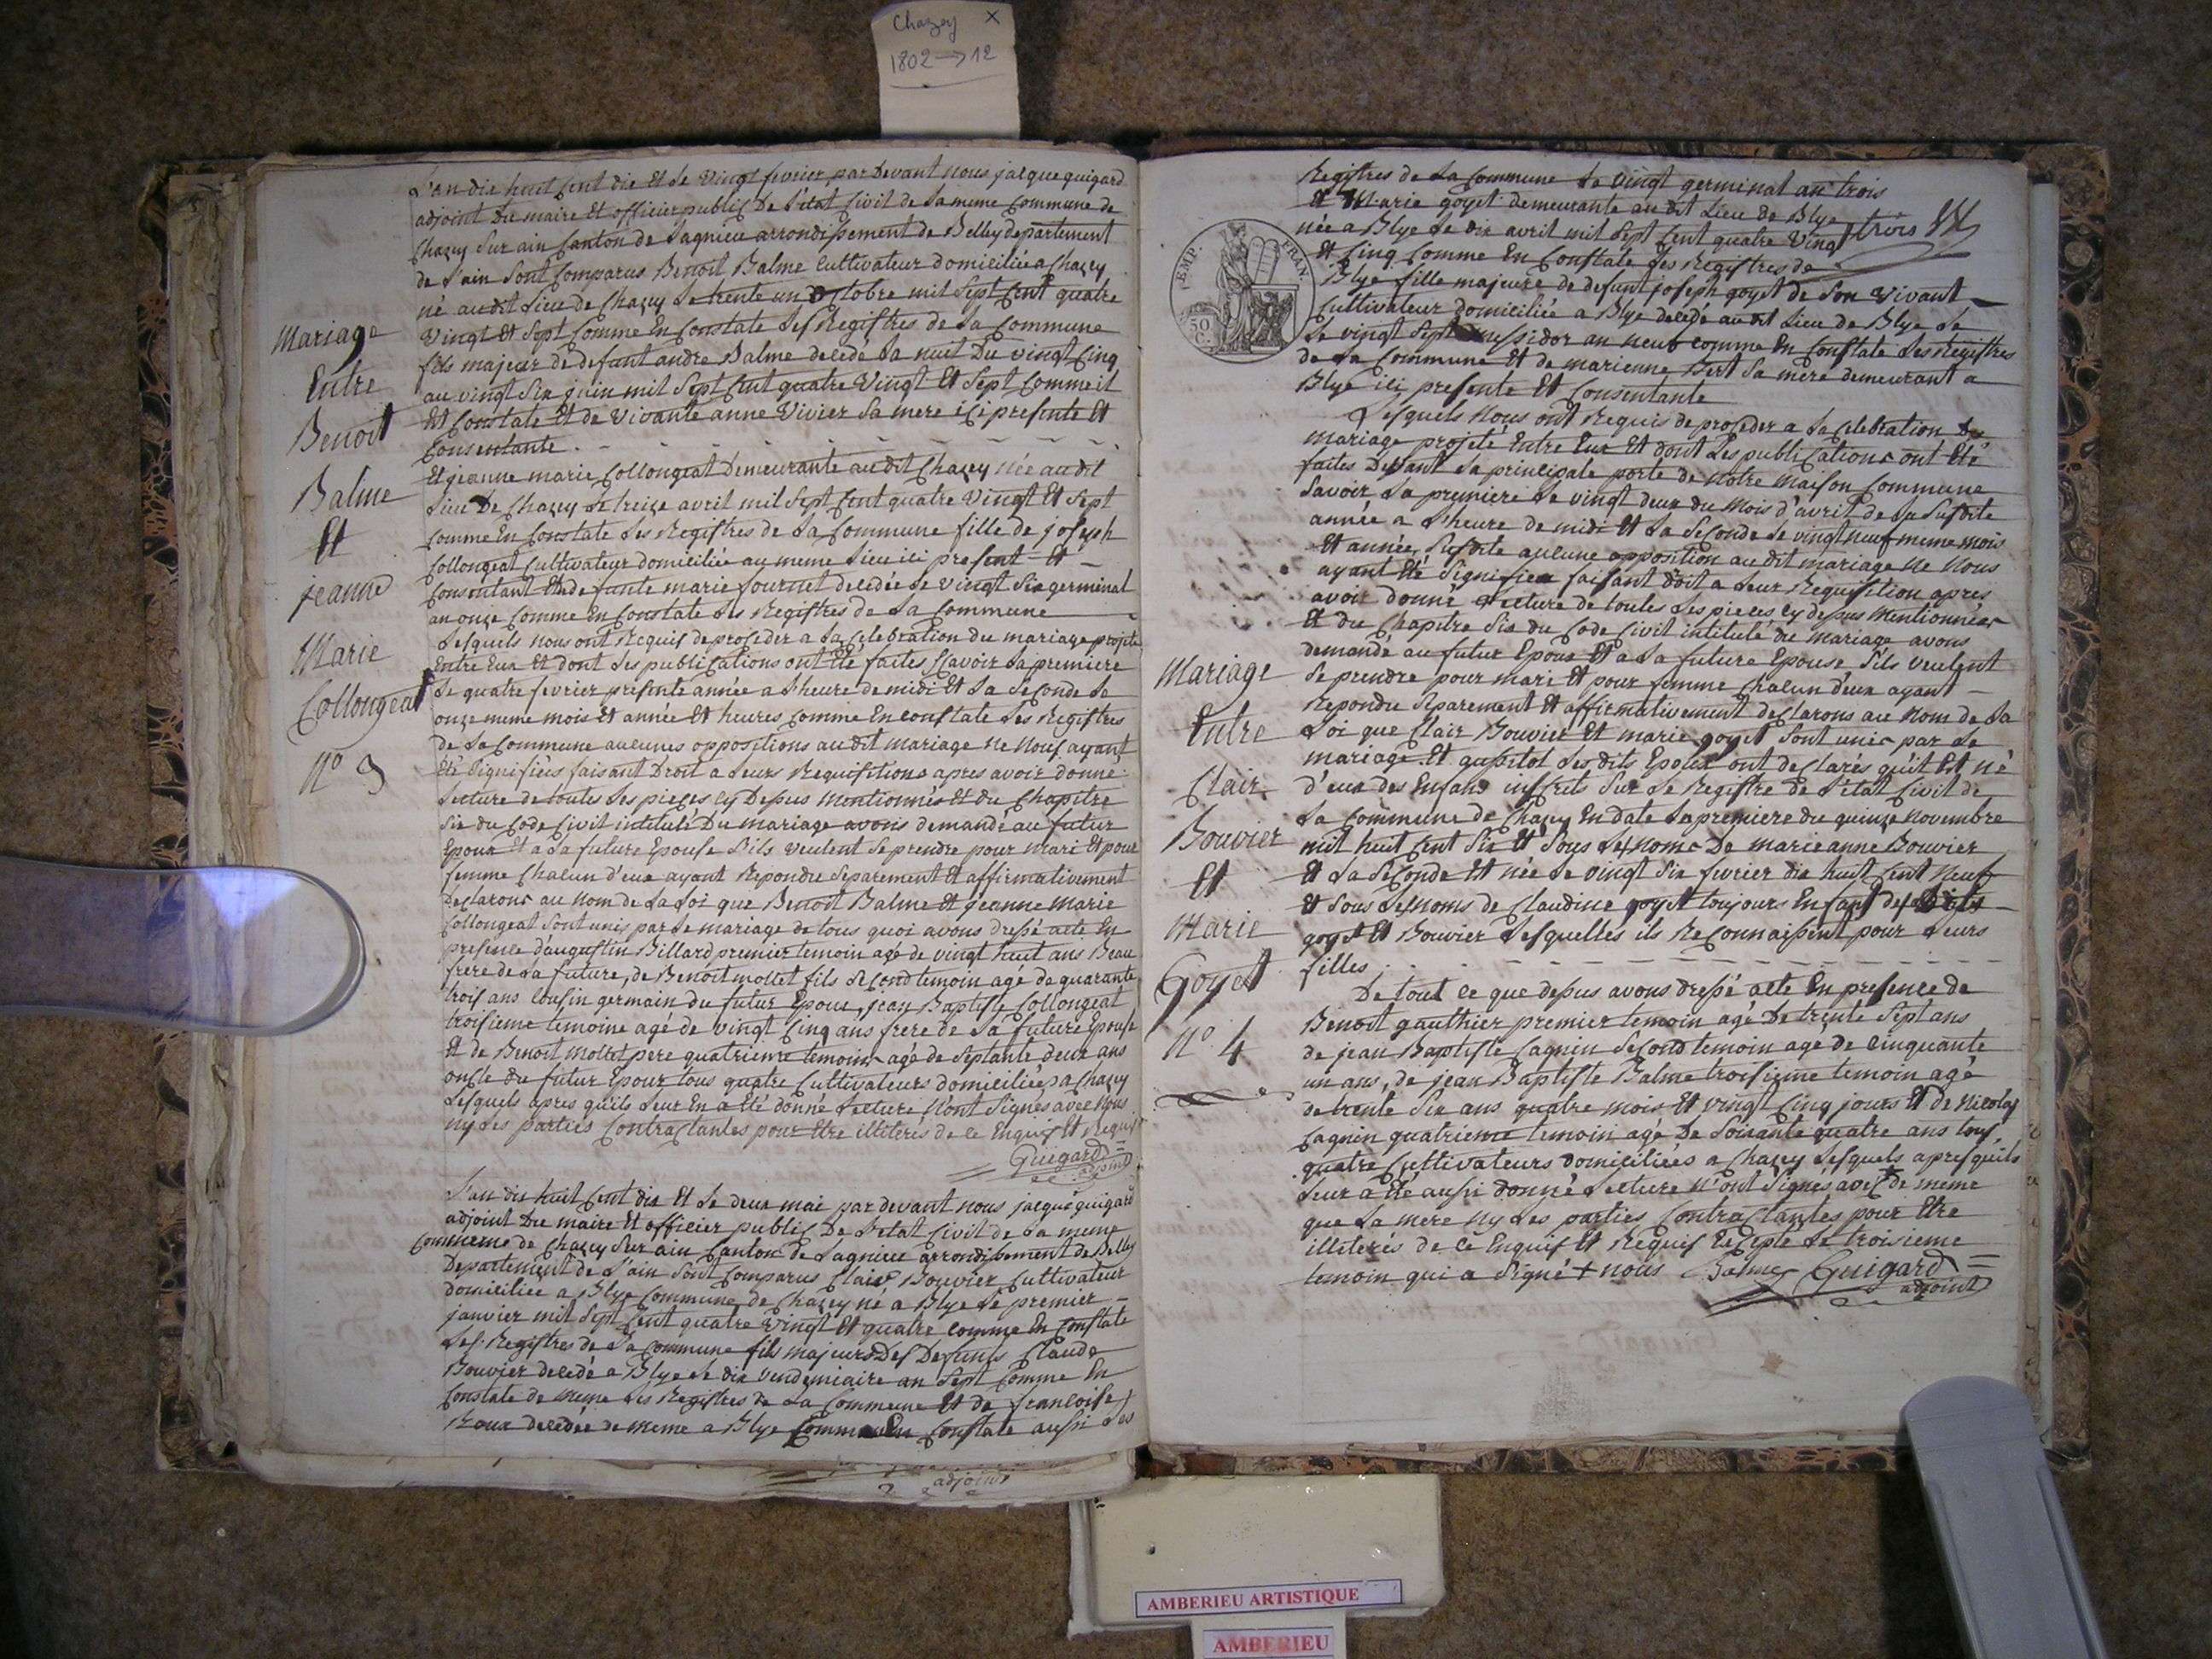 Chazey X
1802 → 12
L'an dix huit cent dix Et le vingt fevrier, par Devant nous jacque guigard
adjoint du maire Et officier public De l'état Civil de la meme Commune de
Chazey Sur ain Canton de Lagnieu arrondissement de Belley departement
de l'ain Sont Comparus Benoit Balme Cultivateur domicilié a Chazey
né audit Lieu de Chazey le trente un octobre mil Sept Cent quatre
Vingt Et Sept Comme En Constate Les Registres de La Commune
fils majeur de defunt andre Balme decedé La nuit Du vingt Cinq
au vingt Six juin mil Sept Cent quatre Vingt Et Sept Comme il
Est Constate Et de Vivante anne Vivier Sa mere ici presente Et
Consentante
Et jeanne marie Collongeat Demeurante au dit Chazey née au dit
Lieu De Chazey le treize avril mil Sept Cent quatre Vingt Et Sept
Comme En Constate Les Registres de La Commune fille de joseph
Collongeat Cultivateur domicilié au meme Lieu ici present Et
Consentant Et de defunte marie fournet decedée le vingt Six germinal
an onze Comme En Constate les Registres de La Commune
Lesquels nous ont Requis de proceder a La Celebration du mariage projeté
Entre Eux Et dont Les publications ont Eté faites Scavoir La premiere
Le quatre fevrier presente année a l'heure de midi Et La Seconde Le
onze meme mois Et année Et heures Comme En constate Les Registres
de La Commune aucunes oppositions au dit mariage ne nous ayant
Eté Signifiées faisant Droit a Leurs Requisitions apres avoir donné
Lecture de toutes Les pieces cy Dessus mentionnés Et du Chapitre
Six du Code Civil intitulé Du mariage avons demandé au futur
Epoux Et a La future Epouse S'ils veulent Se prendre pour mari Et pour
femme Chacun d'eux ayant Repondu Separement Et affirmativement
Declarons au nom de La Loi que Benoit Balme Et jeanne Marie
Collongeat Sont unis par Le mariage de tous quoi avons dressé acte En
presence d'augustin Billard premier temoin agé de vingt huit ans Beau
frere de La future, de Benoit mollet fils Second temoin agé de quarante
trois ans Cousin germain du futur Epoux, jean Baptiste Collongeat
troisieme temoine agé de vingt Cinq ans frere de La future Epouse
Et de Benoit mollet pere quatrieme temoin agé de Septante deux ans
oncle du futur Epoux tous quatre Cultivateurs domiciliés a Chazey
Lesquels apres qu'ils Leur En a Eté donné Lecture N'ont Signés avec nous
ny Les parties Contractantes pour Etre illiterés de ce Enquis Et Requis
Guigard
adjoint
Mariage
Entre
Benoit
Balme
Et
jeanne
Marie
Collongeat
N° 3
L'an dix huit Cent dix Et le deux mai par devant nous jacque guigard
adjoint Du maire Et officier public De l'etat Civil de La meme
Commune de Chazey Sur ain Canton de Lagnieu arrondissement de Belley
Departement de l'ain Sont Comparus Clair Bouvier Cultivateur
domiciliée a Blye Commune de Chazey né a Blye Le premier
janvier mil Sept Cent quatre Vingt Et quatre comme En Constate
Les Registres de La Commune fils majeurs Des Defunts Claude
Bouvier decedé a Blye Le dix Vendemiaire an Sept Comme En
Constate de meme Les Registres de La Commune Et de francoise
Roux decedée de meme a Blye Comme En Constate aussi Les
adjoint
Registres de La Commune Le vingt germinal an trois
Et Marie goyet demeurante au dit Lieu de Blye
née a Blye Le dix avril mil Sept Cent quatre Vingt trois
Et Cinq Comme En Constate Les Registres de
Blye fille majeure de defunt joseph goyet de Son Vivant
Cultivateur domiciliée a Blye decedé au dit Lieu de Blye Le
Le vingt Sept messidor an neuf comme En Constate Les Registres
de La Commune Et de marienne Bert Sa mere demeurant a
Blye ici presente Et Consentante
Lesquels nous ont Requis de proceder a La Celebration du
mariage projeté Entre Eux Et dont Les publications ont Eté
faites Devant La principale porte de Notre maison Commune
Savoir La premiere Le vingt deux du mois d'avril de La Susdite
année a l'heure de midi Et La Seconde Le vingt neuf meme mois
Et année Susdite aucune opposition au dit mariage ne nous
ayant Eté Signifiée faisant droit a Leur Requisition apres
avoir donné Lecture de toutes Les pieces cy dessus mentionnées
Et du Chapitre Six du Code Civil intitulé du mariage avons
demandé au futur Epoux Et a La future Epouse S'ils veulent
Se prendre pour mari Et pour femme Chacun d'eux ayant
Repondu Separement Et affirmativement declarons au nom de La
Loi que Clair Bouvier Et marie goyet Sont unis par Le
mariage. Et aussitot Les dits Epoux ont declarés qu'il Est né
d'eux des Enfans inscrits Sur Le Registre de l'état Civil de
La Commune de Chazey En date La premiere du quinze Novembre
mil huit Cent Six Et Sous Les noms De marieanne Bouvier
Et La Seconde Et née Le vingt Six fevrier dix huit Cent Neuf
Et Sous Les noms de Claudine goyet toujours Enfant des dits
goyet Et Bouvier Lesquelles ils Reconnaissent pour Leurs
filles
De tout ce que dessus avons dressé acte En presence de
Benoit gauthier premier temoin agé De trente Sept ans
de jean Baptiste Cagnin Second temoin agé de cinquante
un ans, de jean Baptiste Balme troisieme temoin agé
de trente Six ans quatre mois Et vingt Cinq jours Et de Nicolas
Cagnin quatrieme temoin agé De Soixante quatre ans tous
quatre Cultivateurs domiciliées a Chazey Lesquels apres qu'ils
Leur a Eté aussi donné Lecture N'ont Signés avec de meme
que La mere ny Les parties Contractantes pour Etre
illiterés de ce Enquis Et Requis Excepte Le troisieme
temoin qui a Signé + nous Balme Guigard
adjoint
Mariage
Entre
Clair
Bouvier
Et
Marie
Goyet
N° 4
TEMP. FRAN.
50
C.
AMBERIEU ARTISTIQUE
AMBERIEU